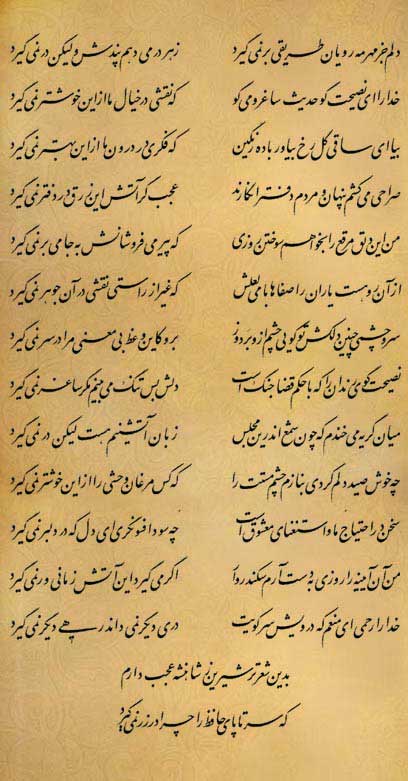 دلم جز مهر مه رویان طریقی بر نمی گیرد ز هر در می دهم پندش ولیکن در نمی گیرد
خدا را ای نصیحت گو حدیث ساغر و می گو که نقشی در خیال ما از این خوشتر نمی گیرد
بیا ای ساقی گل رخ بیاور باده رنگین که فکری در درون ما از این بهتر نمی گیرد
صراحی می کشم پنهان و مردم دفتر انگارند عجب گر آتش این زرق در دفتر نمی گیرد
من این دلق مرقع را بخواهم سوختن روزی که پیر می فروشانش به جامی بر نمی گیرد
از آن رو هست یاران را صفاها با می لعلش که غیر از راستی نقشی در آن جوهر نمی گیرد
سر و چشمی چنین دلکش تو گویی چشم از او بردوز برو کاین وعظ بی معنی مرا در سر نمی گیرد
نصیحت گوی رندان را که با حکم قضا جنگ است دلش بس تنگ می بینم مگر ساغر نمی گیرد
میان گریه می خندم که چون شمع اندرین مجلس زبان آتشینم هست لیکن در نمی گیرد
چه خوش صید دلم کردی بنازم چشم مستت را که کس مرغان وحشی را از این خوشتر نمی گیرد
سخن در احتیاج ما و استغنای معشوق است چه سود افسونگری ای دل که در دلبر نمی گیرد
من آن آیینه را روزی به دست آرم سکندروار اگر می گیرد این آتش زمانی ور نمی گیرد
خدا را رحمی ای منعم که درویش سر کویت دری دیگر نمی داند رهی دیگر نمی گیرد
بدین شعر تر شیرین ز شاهنشه عجب دارم
که سر تا پای حافظ را چرا در زر نمی گیرد